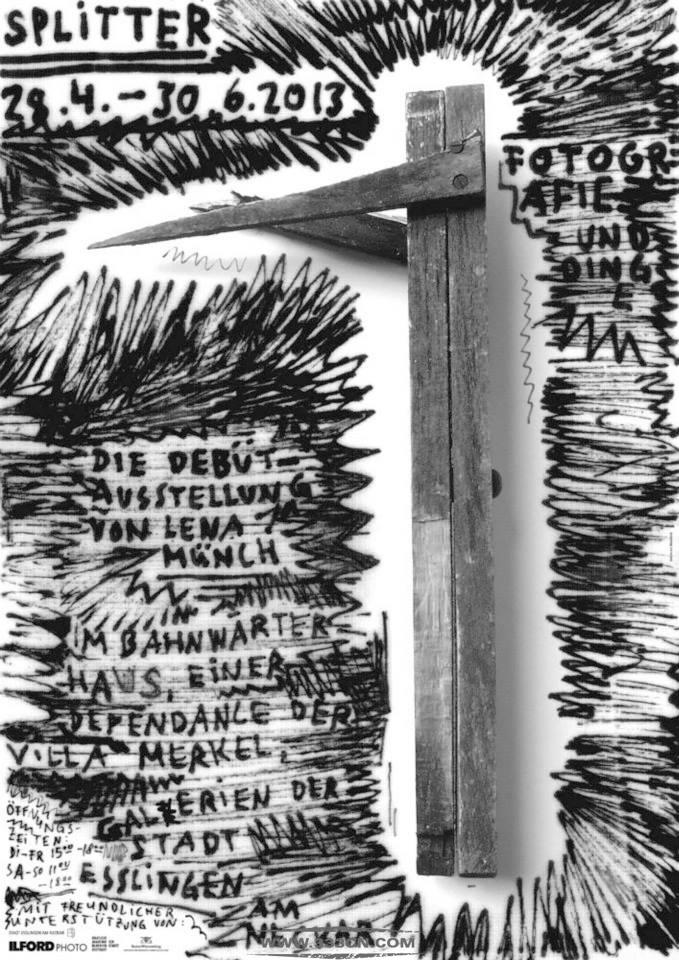 SPLITTER
28.4.–30.6.2013
FOTOGR-
AFIE
UND
DING
E
DIE DEBÜT-
AUSSTELLUNG
VON LENA
MÜNCH
IM BAHNWÄRTER-
HAUS, EINER
DEPENDANCE DER
VILLA MERKEL,
GALERIEN DER
STADT
ESSLINGEN
AM
NECKAR
ÖFFNUNGS-
ZEITEN:
DI-FR 15⁰⁰-18⁰⁰
SA-SO 11⁰⁰
-18⁰⁰
MIT FREUNDLICHER
UNTERSTÜTZUNG VON:
ILFORD PHOTO
WWW.333CN.COM